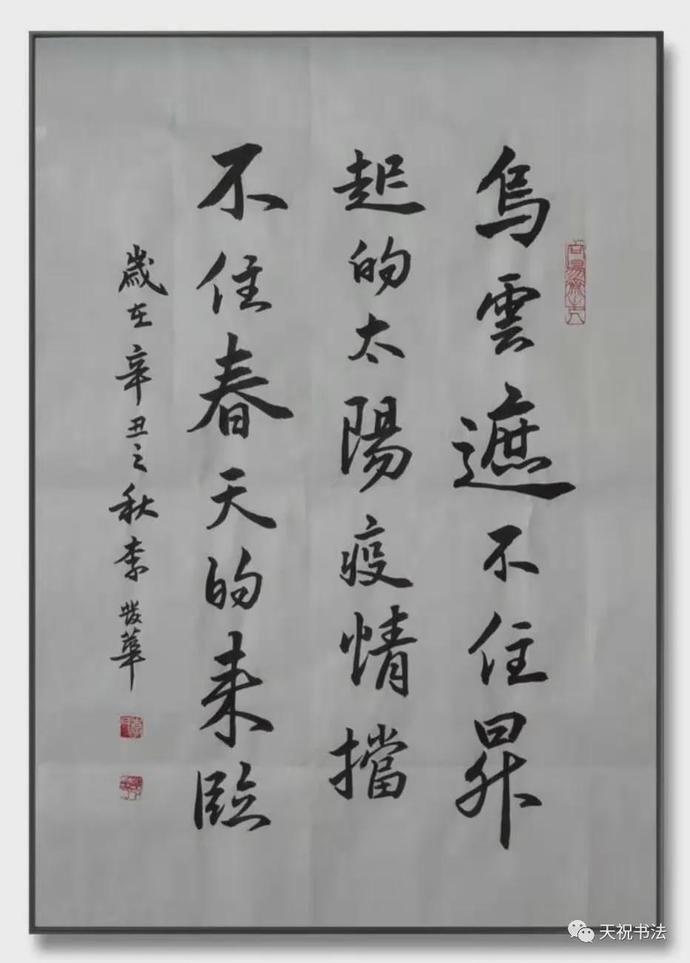 烏雲遮不住昇
起的太陽疫情擋
不住春天的来臨
歲在辛丑之秋李發華
天祝书法